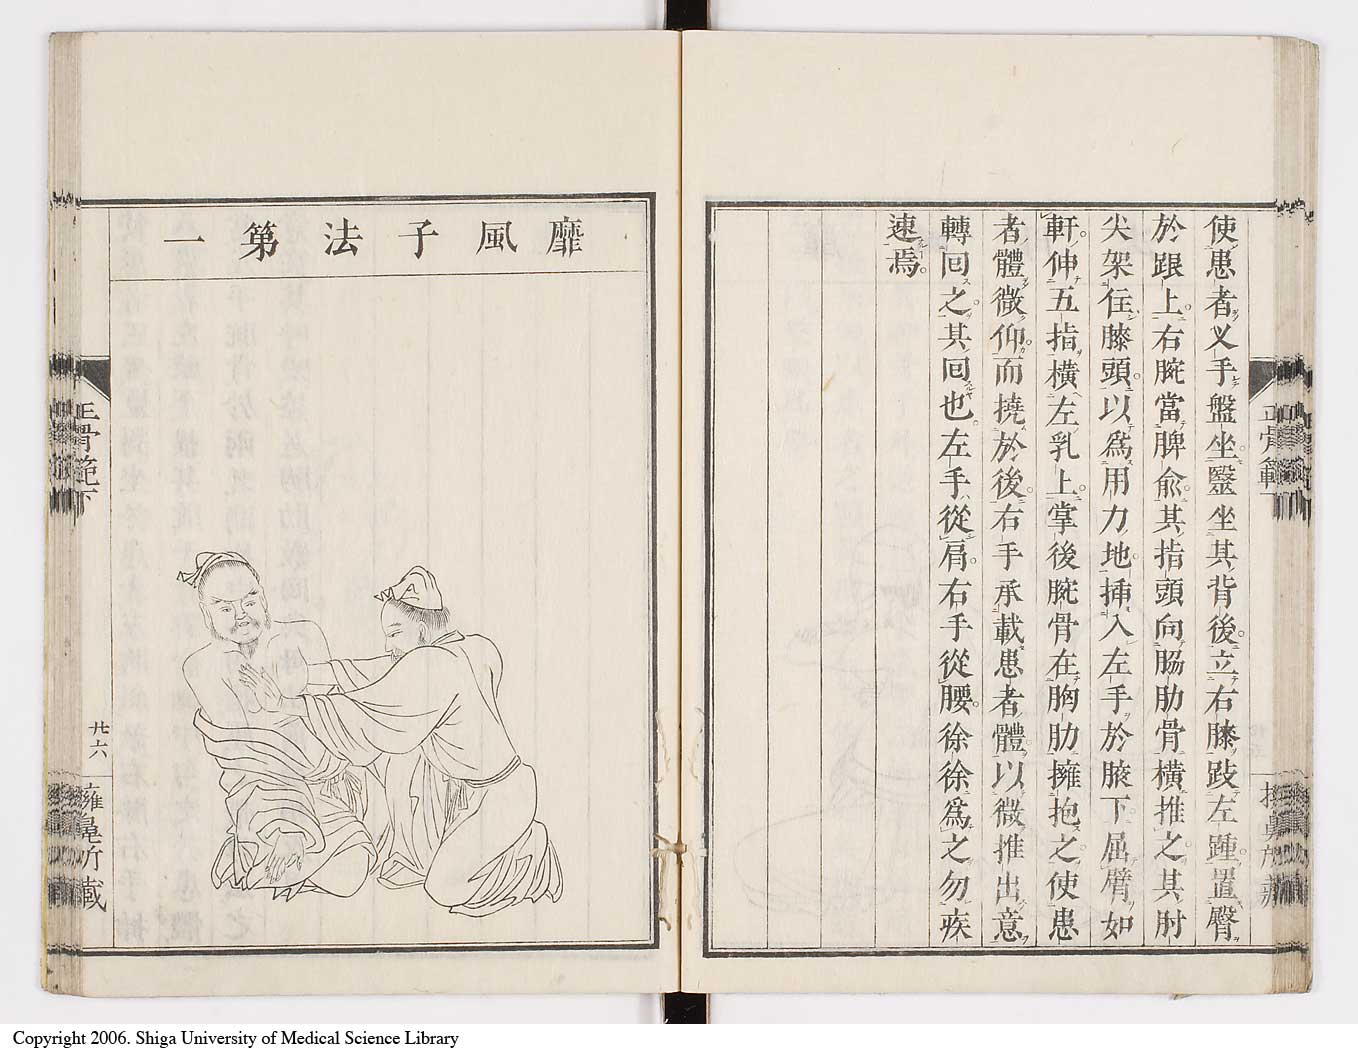 使患者义手盤坐毉坐其背後立右膝跂左踵置臀
於跟上右腕當脾俞其指頭向腸肋骨橫推之其肘
尖架住膝頭以爲用力地揷入左手於腋下屈臂如
軒伸五指橫左乳上掌後腕骨在胸肋擁抱之使患
者體微仰而撓於後右手承載患者體以微推出意
轉回之其回也左手從肩右手從腰徐徐爲之勿疾
速焉
正骨範
靡風子法第一
正骨範下
廿六
擁鼻所藏
Copyright 2006. Shiga University of Medical Science Library